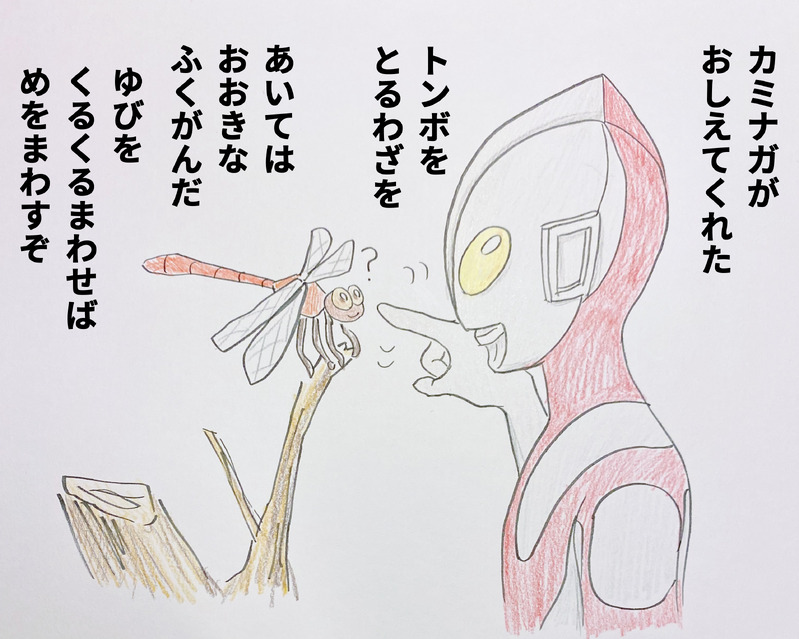 カミナガが
おしえてくれた
トンボを
とるわざを
あいては
おおきな
ふくがんだ
ゆびを
くるくるまわせば
めをまわすぞ
?